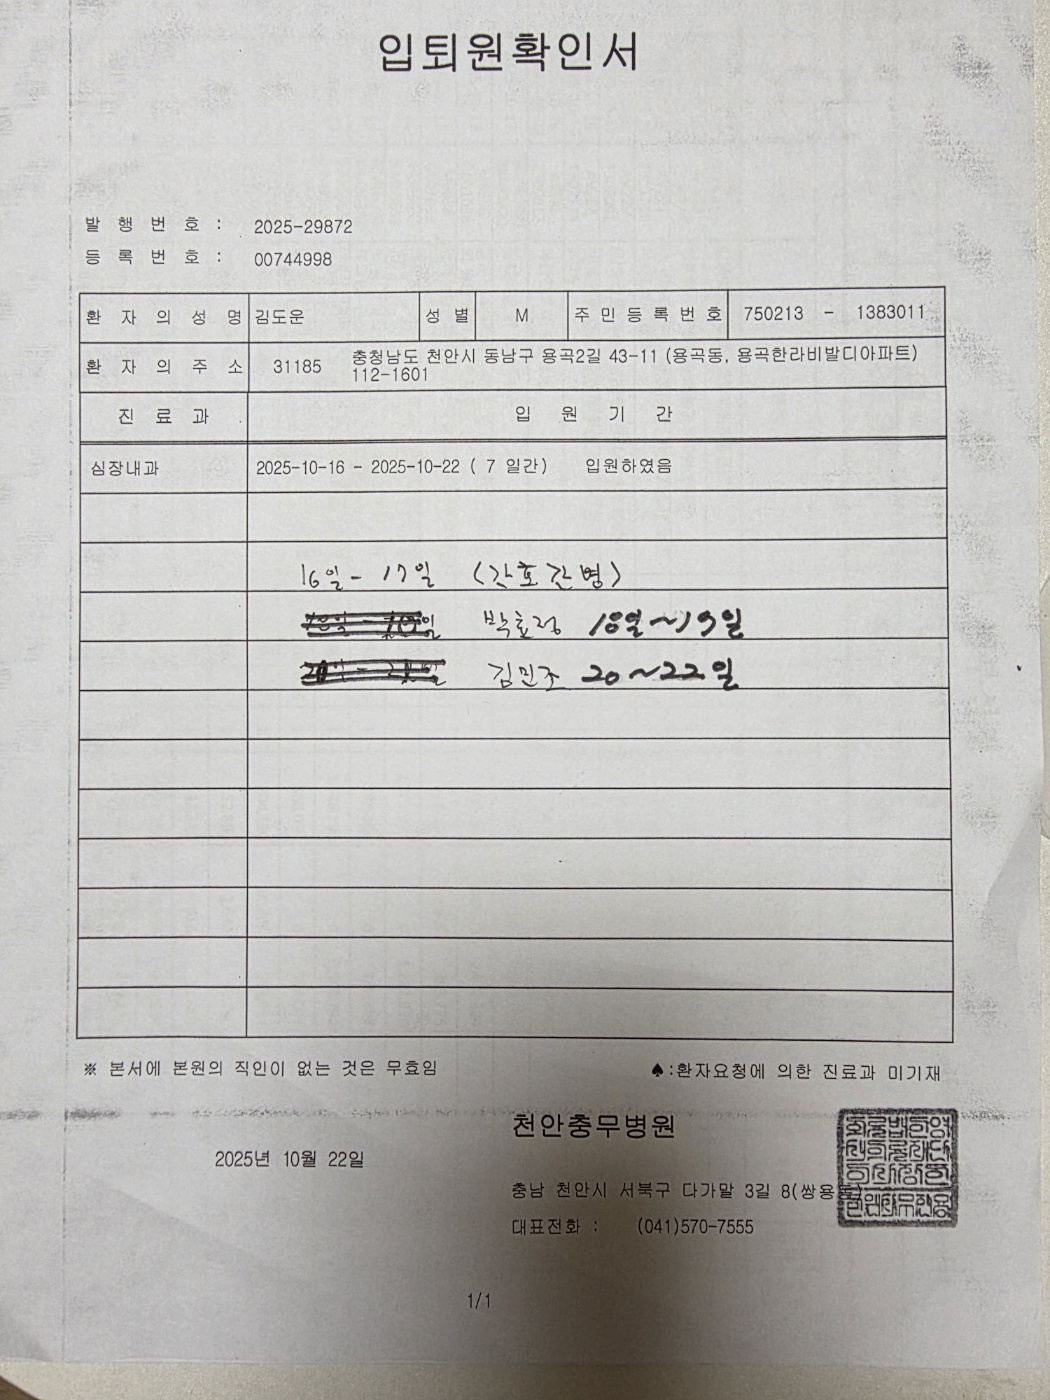 입퇴원확인서
발 행 번 호 : 2025-29872
등 록 번 호 : 00744998
환 자 의 성 명 김도운 성 별 M 주 민 등 록 번 호 750213 - 1383011
환 자 의 주 소 31185 충청남도 천안시 동남구 용곡2길 43-11 (용곡동, 용곡한라비발디아파트)
112-1601
진 료 과 입 원 기 간
심장내과 2025-10-16 - 2025-10-22 ( 7 일간) 입원하였음
16일 - 17일 (간호간병)
박효정 18일~19일
김민조 20~22일
※ 본서에 본원의 직인이 없는 것은 무효임 ♠:환자요청에 의한 진료과 미기재
천안충무병원
2025년 10월 22일
충남 천안시 서북구 다가말 3길 8(쌍용동)
대표전화 : (041)570-7555
1/1